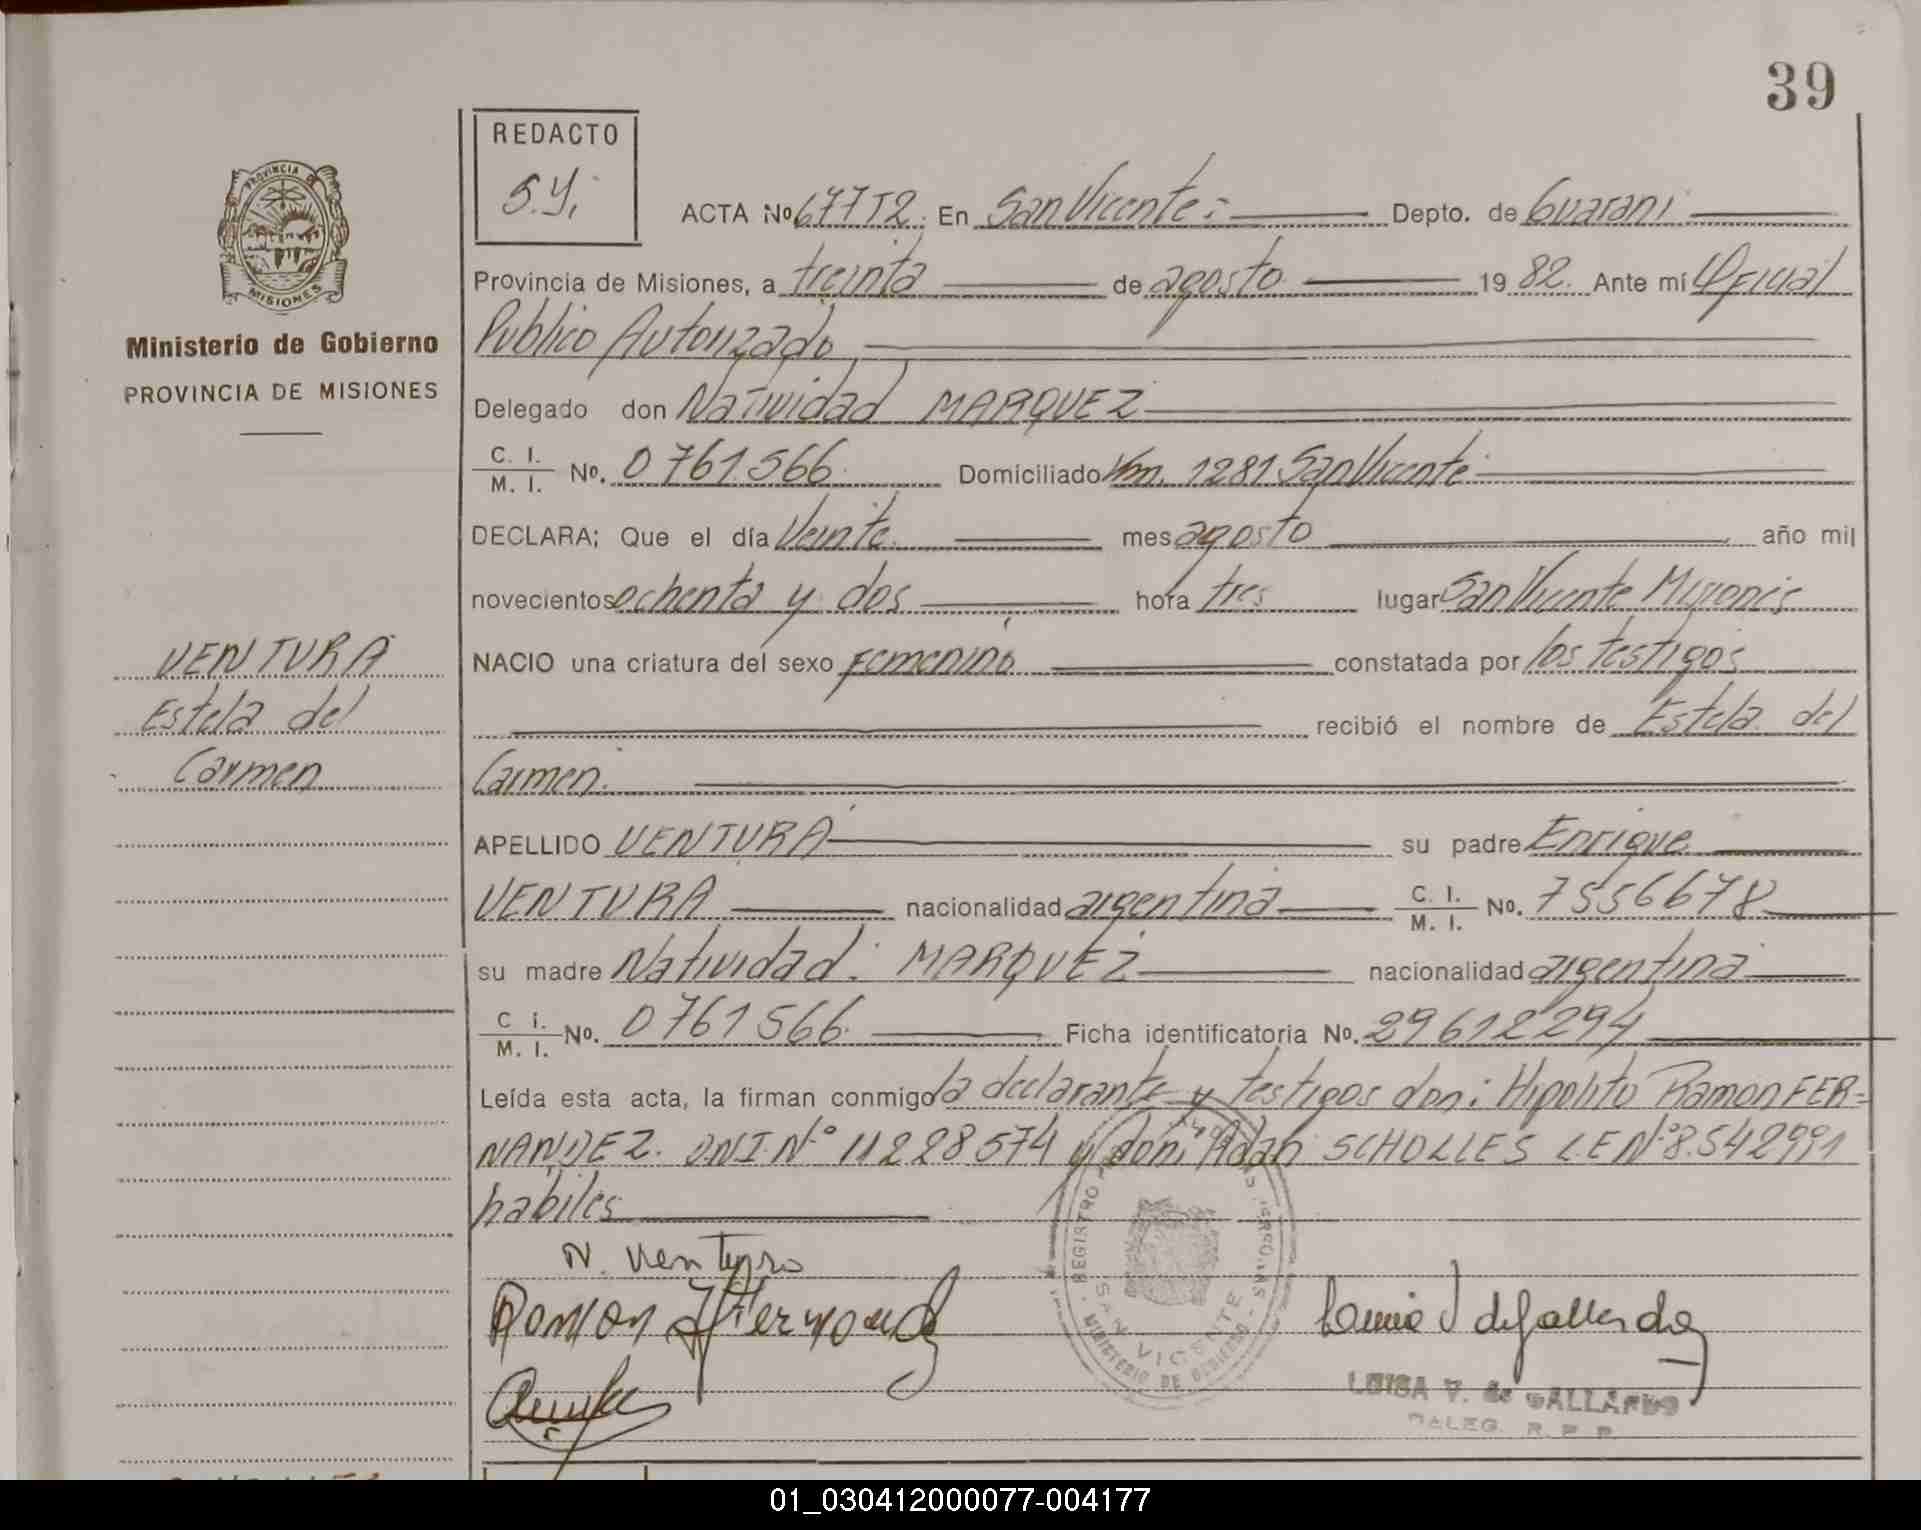 39
REDACTO
S.Y.
PROVINCIA DE
MISIONES
Ministerio de Gobierno
PROVINCIA DE MISIONES
ACTA No 677T2. En San Vicente: Depto. de Guarani
Provincia de Misiones, a treinta de agosto 19 82. Ante mí Oficial
Publico Autorizado,
Delegado don Natividad MARQUEZ
C. I. / M. I. No. 0761.566. Domiciliado Km. 1281 San Vicente
DECLARA; Que el día Veinte mes agosto año mil
novecientos ochenta y dos hora tres lugar San Vicente Misiones
NACIO una criatura del sexo femenino constatada por los testigos
recibió el nombre de Estela del
Carmen.
APELLIDO VENTURA su padre Enrique
VENTURA nacionalidad argentina C. I. / M. I. No. 7556678
su madre Natividad MARQUEZ nacionalidad argentina
C I. / M. I. No. 0761566 Ficha identificatoria No. 29612294
Leída esta acta, la firman conmigo la declarante y testigos don: Hipolito Ramon FER=
NANDEZ. DNI.Nº 11228.574 y don: Adan SCHOLLES L.E Nº 8.542991
habiles
VENTURA
Estela del
Carmen
N. Venturo
REGISTRO
SAN VICENTE
MINISTERIO DE GOBIERNO
LUISA V. de GALLARDO
DALEG. R. P. P.
01_030412000077-004177